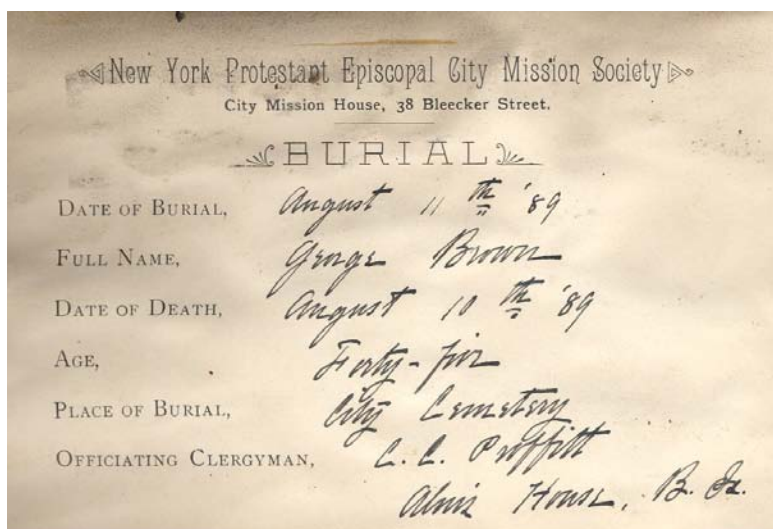 New York Protestant Episcopal City Mission Society
City Mission House, 38 Bleecker Street.
BURIAL
DATE OF BURIAL, August 11th '89
FULL NAME, George Brown
DATE OF DEATH, August 10th '89
AGE, Forty-five
PLACE OF BURIAL, City Cemetery
OFFICIATING CLERGYMAN, C. C. Proffitt
Alms House, B. Is.